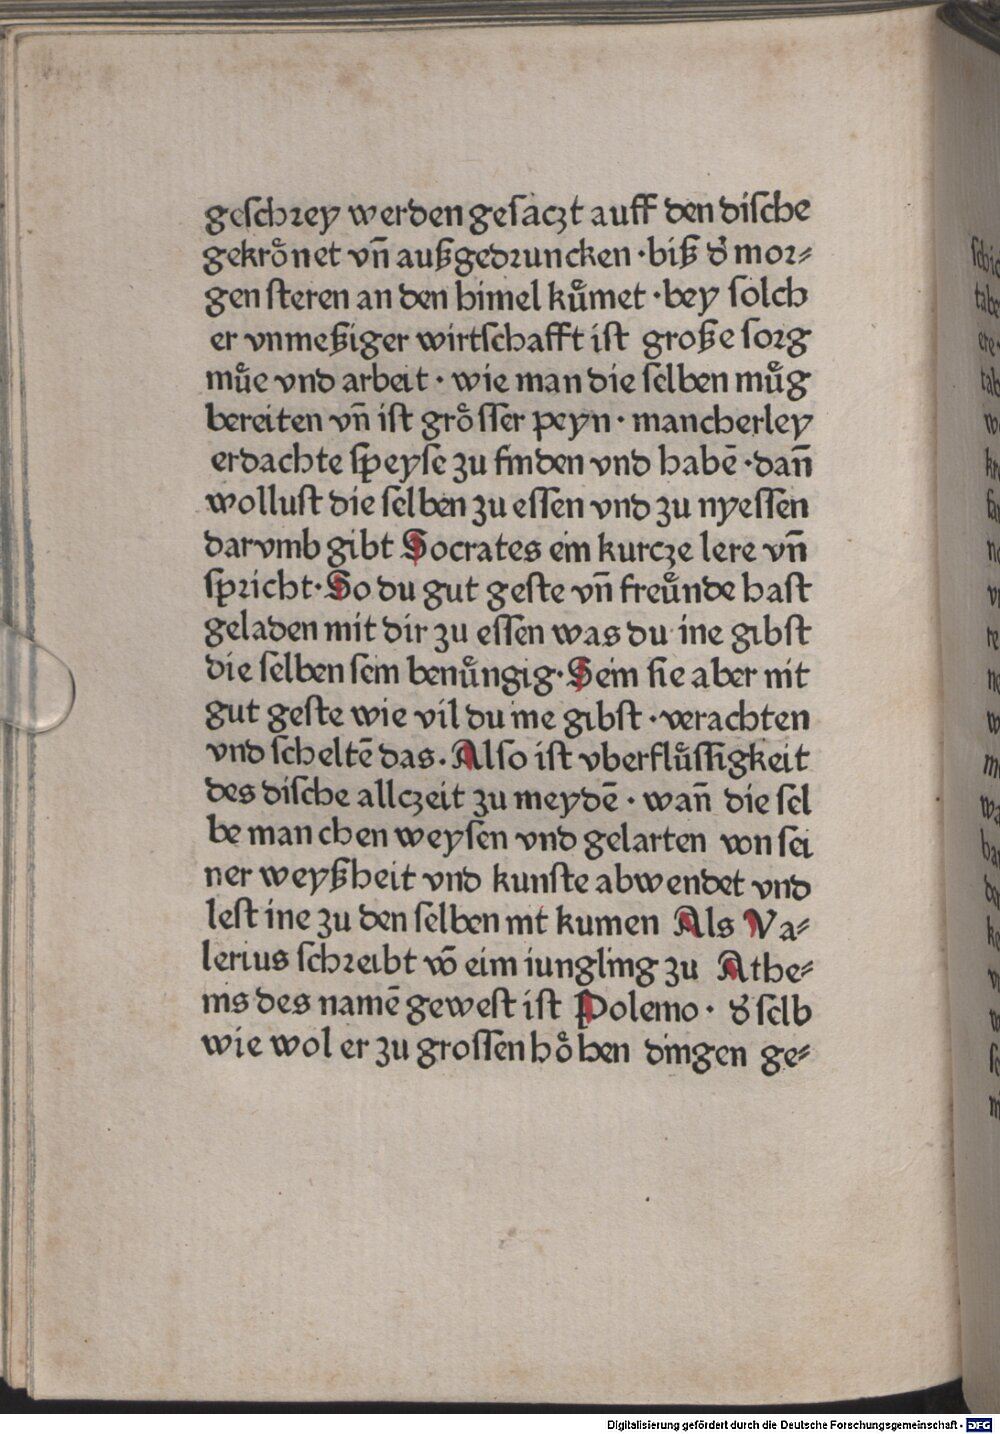 geſchꝛey werden geſaczt auff den diſche
gekroͤnet vn̄ außgedꝛuncken ·biß dͤ moꝛ⸗
gen ſteren an den himel kuͤmet ·bey ſolch
er vnmeßiger wirtſchafft iſt große ſoꝛg
muͤe vnd arbeit · wie man die ſelben muͤg
bereiten vn̄ iſt groͤſſer peyn · mancherley
erdachte ſpeyſe zu finden vnd habē ·dan̄
wolluſt die ſelben zu eſſen vnd zu nyeſſen
darvmb gibt Socrates ein kurcze lere vn̄
ſpꝛicht· So du gut geſte vn̄ freuͤnde haſt
geladen mit dir zu eſſen was du ine gibſt
die ſelben ſein benuͤngig· Sein ſie aber nit
gut geſte wie vil du ine gibſt ·verachten
vnd ſcheltē das. Alſo iſt vberfluͤſſigkeit
des diſche allczeit zu meydē · wan̄ die ſel
be manchen weyſen vnd gelarten von ſei
ner weyßheit vnd kunſte abwendet vnd
leſt ine zu den ſelben nit kumen Als Va⸗
lerius ſchꝛeibt vō eim iungling zu Athe⸗
nis des namē geweſt iſt Polemo · dͤ ſelb
wie wol er zu groſſen hoͤhen dingen ge⸗
Digitalisierung gefördert durch die Deutsche Forschungsgemeinschaft - DFG